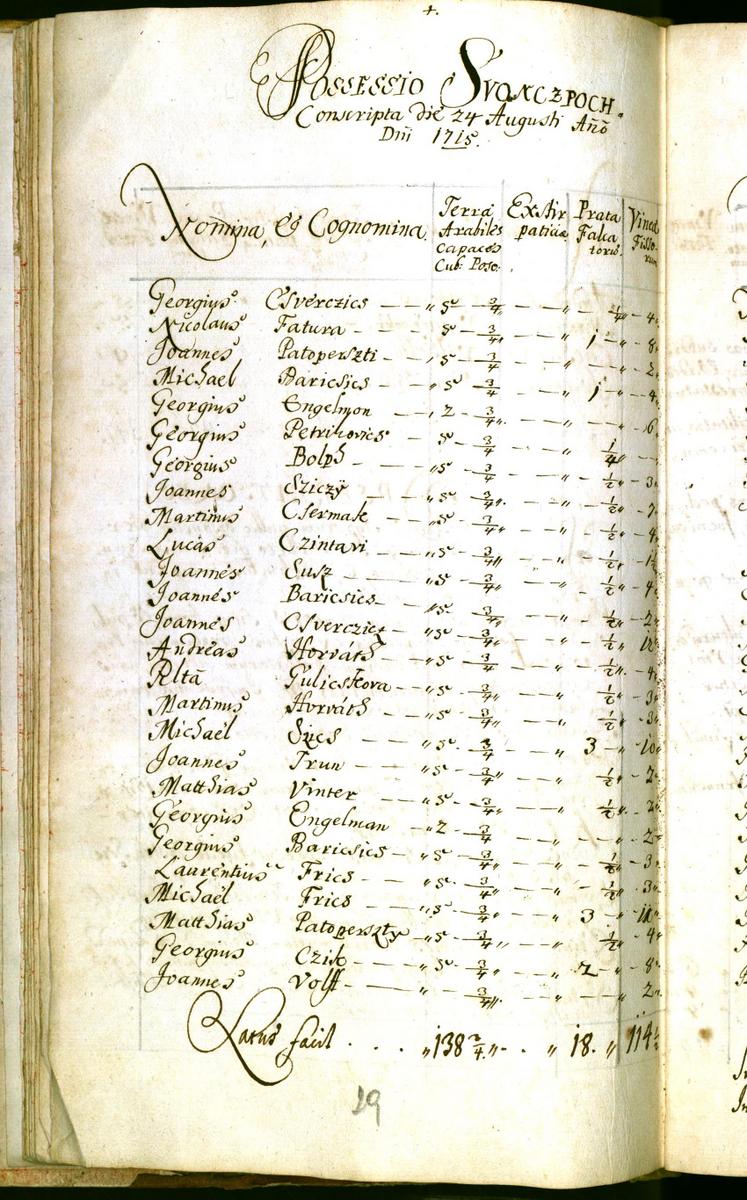 4.
Possessio Svonczpoch.
Conscripta die 24 Augusti Año
Dni 1715.
Nomina, et Cognomina.
Terrae Arabiles Capaces Cub: Poso:
Exstirpatitiae
Prata Falcatorus
Vinea Fossorum
Georgius Csverczics — " 5 — 3/4 " — " — 1/4 " — 4 "
Nicolaus Fatura — " 5 — 3/4 " — " 1 — " — 8 "
Joannes Patoperszti — " 5 — 3/4 " — " — " — 2 "
Michael Baricsics — " 5 — 3/4 " — " 1 — " — 4 "
Georgius Engelmon — " 2 — 3/4 " — " — " — 6 "
Georgius Petrikovics — 5 — 3/4 " — " — 1/4 " —
Georgius Bolph — " 5 — 3/4 " — " — 1/2 " — 3 "
Joannes Sziczy — " 5 — 3/4 " — " — 1/2 " —
Martinus Csermak — " 5 — 3/4 " — " — 1/2 " — 4 "
Lucas Czintavi — " 5 — 3/4 " — " — 1/2 " —
Joannes Susz — " 5 — 3/4 " — " — 1/2 " — 4 "
Joannes Baricsics — " 5 — 3/4 " — " — 1/2 " — 2 "
Joannes Csverczics — " 5 — 3/4 " — " — 1/2 " —
Andreas Horváth — " 5 — 3/4 " — " — 1/2 " — 4 "
Rltã Gulicskova — " 5 — 3/4 " — " — 1/2 " — 3 "
Martinus Horváth — " 5 — 3/4 " — " — 1/2 " — 3 "
Michael — " 5 — 3/4 " — " 3 — " — 10 "
Joannes Trun — " 5 — 3/4 " — " — 1/2 " — 2 "
Matthias Vinter — " 5 — 3/4 " — " — 1/2 " — 2 "
Georgius Engelman — " 2 — 3/4 " — " — " — 2 "
Georgius Baricsics — " 5 — 3/4 " — " — 1/2 " — 3 "
Laurentius Frics — " 5 — 3/4 " — " — 1/2 " — 3 "
Michael Frics — " 5 — 3/4 " — " 3 — " —
Matthias Patoperszty — " 5 — 3/4 " — " — 1/2 " — 4 "
Georgius Czik — " 5 — 3/4 " — " 2 — " — 8 "
Joannes Volff — " — 3/4 " — " — " — 2 "
Latus facit . . . " 138 3/4 " — " 18. " 114 1/2
29